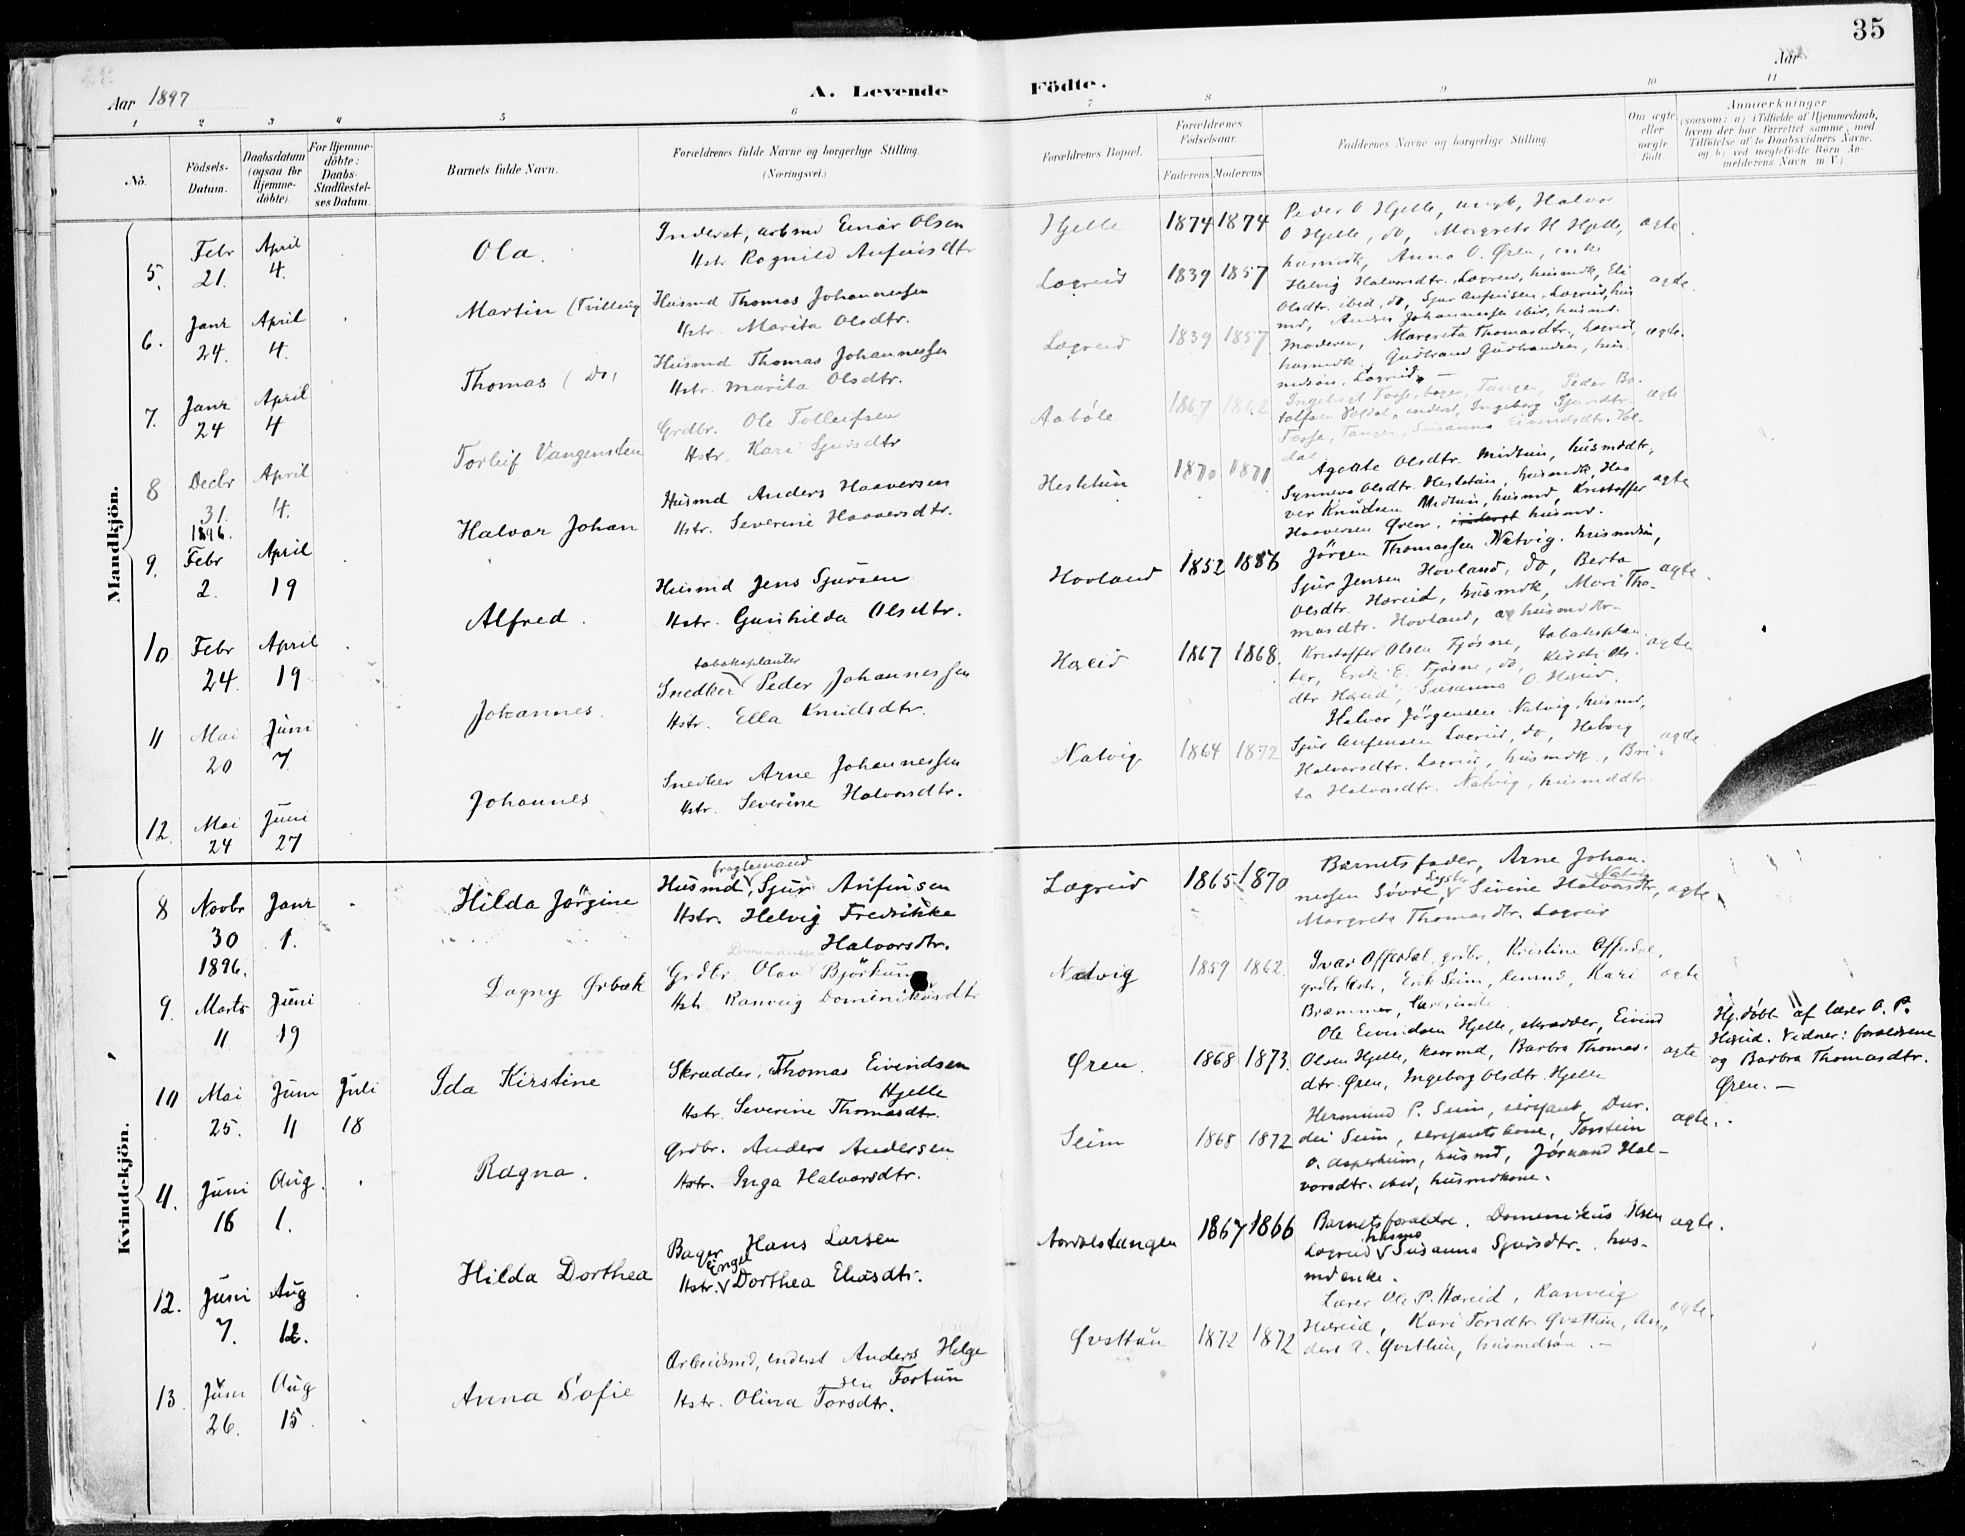 35
Aar 1897
A. Levende Födte.
Aar
1 2 3 4 5 6 7 8 9 10 11
No.
Födsels-Datum.
Daabsdatum (ogsaa for Hjemme-döbte).
For Hjemme-döbte: Daabs-Stadfæstel-ses Datum.
Barnets fulde Navn.
Forældrenes fulde Navne og borgerlige Stilling. (Næringsvei.)
Forældrenes Bopæl.
Forældrenes Fødselsaar.
Faderens Moderens
Faddernes Navne og borgerlige Stilling.
Om ægte eller uægte födt.
Anmærkninger
(saasom: a) i Tilfælde af Hjemmedaab,
hvem der har forrettet samme, med
Tilföielse af to Daabsvidners Navne.
og b) ved uægtefödte Börn An-
melderens Navn m. V.)
Mandkjön.
5. Febr 21. April 4. Ola.
Inderst, arbmd Einar Olsen
Hstr Ragnild Anfinsdtr
Hjelle 1874 1874
Peder O Hjelle, ungk, Halvor
O Hjelle, do, Margrete H Hjelle,
husmdk, Anna O. Øren, enke
ægte.
6. Janr 24. April 4. Martin (Tvilling
Husmd Thomas Johannessen
Hstr. Marita Olsdtr.
Lægreid 1839 1857
Helvig Halvorsdtr. Lægreid, husmdk, Eli
Olsdtr ibid, do, Sjur Anfinsen, Lægreid, hus
md, Anders Johannessen ibid, husmd.
ægte.
7. Janr 24 April 4 Thomas (do)
Husmd Thomas Johannessen
Hstr. Marita Olsdtr.
Lægreid 1839 1857
Moderen, Margreta Thomasdtr., Lægreid,
husmdk, Gudbrand Gudbrandsen, hus
mdsøn. Lægreid. —
ægte.
8 Decbr 31. 1896. April 4. Torleif Vangensten
Grdbr. Ole Tolleifsen
Hstr. Kari Sjursdtr
Aabøle 1867 1862
Ingebrigt Fosse, bager, Tangen, Peder Bo-
talfsen Voldal, inderst, Ingeborg Sjursdtr.
Fosse, Tangen, Susanna Eivindsdtr. Vol-
dal
ægte
9. Febr 2. April 19 Halvor Johan
Husmd Anders Haaversen
Hstr. Severine Haaversdtr.
Hestetun 1870 1871
Agate Olsdtr. Midtun, husmddtr,
Synneva Olsdtr. Hestetun, husmdk, Haa
ver Knudsen Midtun, husmd, Kristoffer
Haaversen Øren, husmd.
ægte
10 Febr 24. April 19 Alfred.
Husmd Jens Sjursen
Hstr. Gunhilda Olsdtr.
Hovland 1852 1886
Jörgen Thomassen Natvig. husmdsøn,
Sjur Jensen Hovland, do, Berta
Olsdtr. Hæreid, husmdk, Mari Tho-
masdtr. Hovland, husmddtr.
ægte.
11 Mai 20 Juni 7. Johannes.
tobaksplanter
Snedker Peder Johannessen
Hstr. Ella Knudsdtr.
Hæreid 1867 1868.
Kristoffer Olsen Fjøsne, tobaksplan
ter, Erik E. Fjøsne, do, Kirsti Ols-
dtr Hæreid, Susanna O. Hæreid.
ægte
12. Mai 24 Juni 27 Johannes
Snedker Arne Johannessen
Hstr. Severine Halvorsdtr.
Natvig 1864 1872
Halvor Jörgensen Natvig, husmd,
Sjur Anfinsen Lægreid, do, Helvig
Halvorsdtr. Lægreid, husmdk., Bri-
ta Halvorsdtr. Natvig, husmddtr.
ægte
Kvindekjön.
8 Novbr 30 1896. Janr 1. Hilda Jörgine
fragtemand
Husmd, Sjur Anfinsen
Hstr. Helvig Fredrikke
Halvorsdtr.
Lægreid 1865 1870
Barnets fader, Arne Johan-
nessen Søvde Lyster, Sivine Halvorsdtr, Natvig
Margrete Thomasdtr. Lægreid
ægte
9. Marts 11 Juni 19 Dagny Ørbæk
Grdbr Olav Björkum
Hstr. Ranveig Dominikusdtr
Natvig 1859 1862.
Ivar Offerdal, grdbr, Kristine Offerdal,
grdbr Hstr, Erik Seim, lensmd, Kari
Bræmmer,
ægte
10 Mai 25. Juni 11 Juli 18 Ida Kirstine
Skrædder, Thomas Eivindsen
Hjelle
Hstr. Severine Thomasdtr.
Øren. 1868 1873.
Ole Eivindsen Hjelle, skrædder, Eivind
Olsen Hjelle, kaarmd, Barbra Thomas-
dtr. Øren, Ingeborg Olsdtr. Hjelle
ægte
Hj.døbt af lærer O. P.
Hæreid. Vidner: forældrene
og Barbra Thomasdtr.
Øren. —
11. Juni 16 Aug. 1. Ragna.
Grdbr. Anders Andersen
Hstr. Inga Halvorsdtr.
Seim 1868 1872
Hermund P. Seim, sersjant, Dur-
dei Seim, sersjants kone, Torstein
O. Asperheim, husmd, Jørand Hal-
vorsdtr. ibid, husmdkone.
ægte.
12. Juni 7. Aug 12. Hilda Dorthea
Bager Hans Larsen
Hstr. Engel Dorthea Eliasdtr.
Aardalstangen 1867 1866
Barnets forældre. Domenikus Iversen
Lægreid husmd Susanna Sjursdtr. hus-
md enke.
ægte.
13. Juni 26. Aug 15 Anna Sofie
Arbeidsmd, inderst Anders Helge
sen Fortun
Hstr. Olina Torsdtr.
Øvsttun 1872 1872
Lærer Ole P. Hæreid, Ranveig
Hæreid, Kari Torsdtr. Øvsttun, An-
ders A. Øvsttun, husmdsøn. —
ægte.